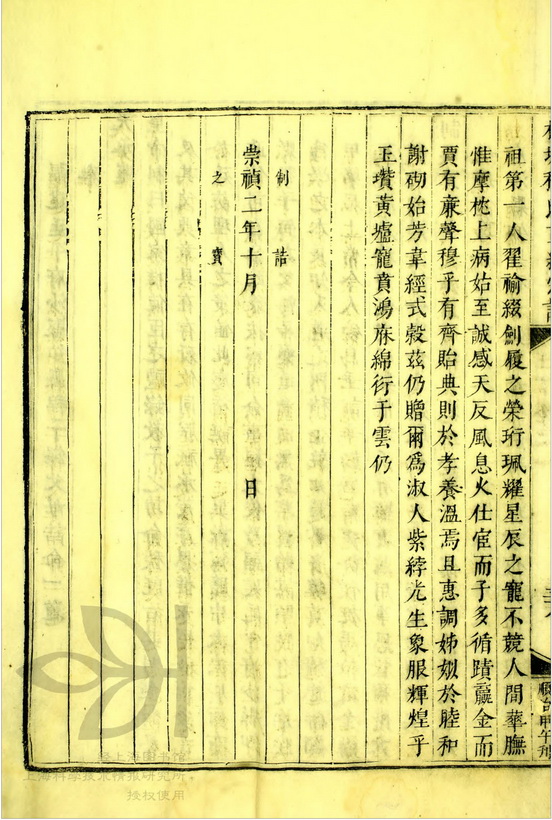 祖第一人翟褕綴劍履之榮珩珮耀星辰之寵不競人間華膴
惟摩梡上病姑至誠感天反風息火仕宦而子多循蹟籯金而
賈有亷聲穆乎有齊貽典則於孝養溫焉且惠調姊姒於睦和
謝砌始芳葦經式榖茲仍贈爾爲淑人紫綍光生象服輝煌乎
玉瓚黃壚寵賁鴻庥綿衍于雲仍
制誥
崇禎二年十月 日
之寶
順治甲午刊
經上海图书馆
上海科学技术情报研究所
授权使用